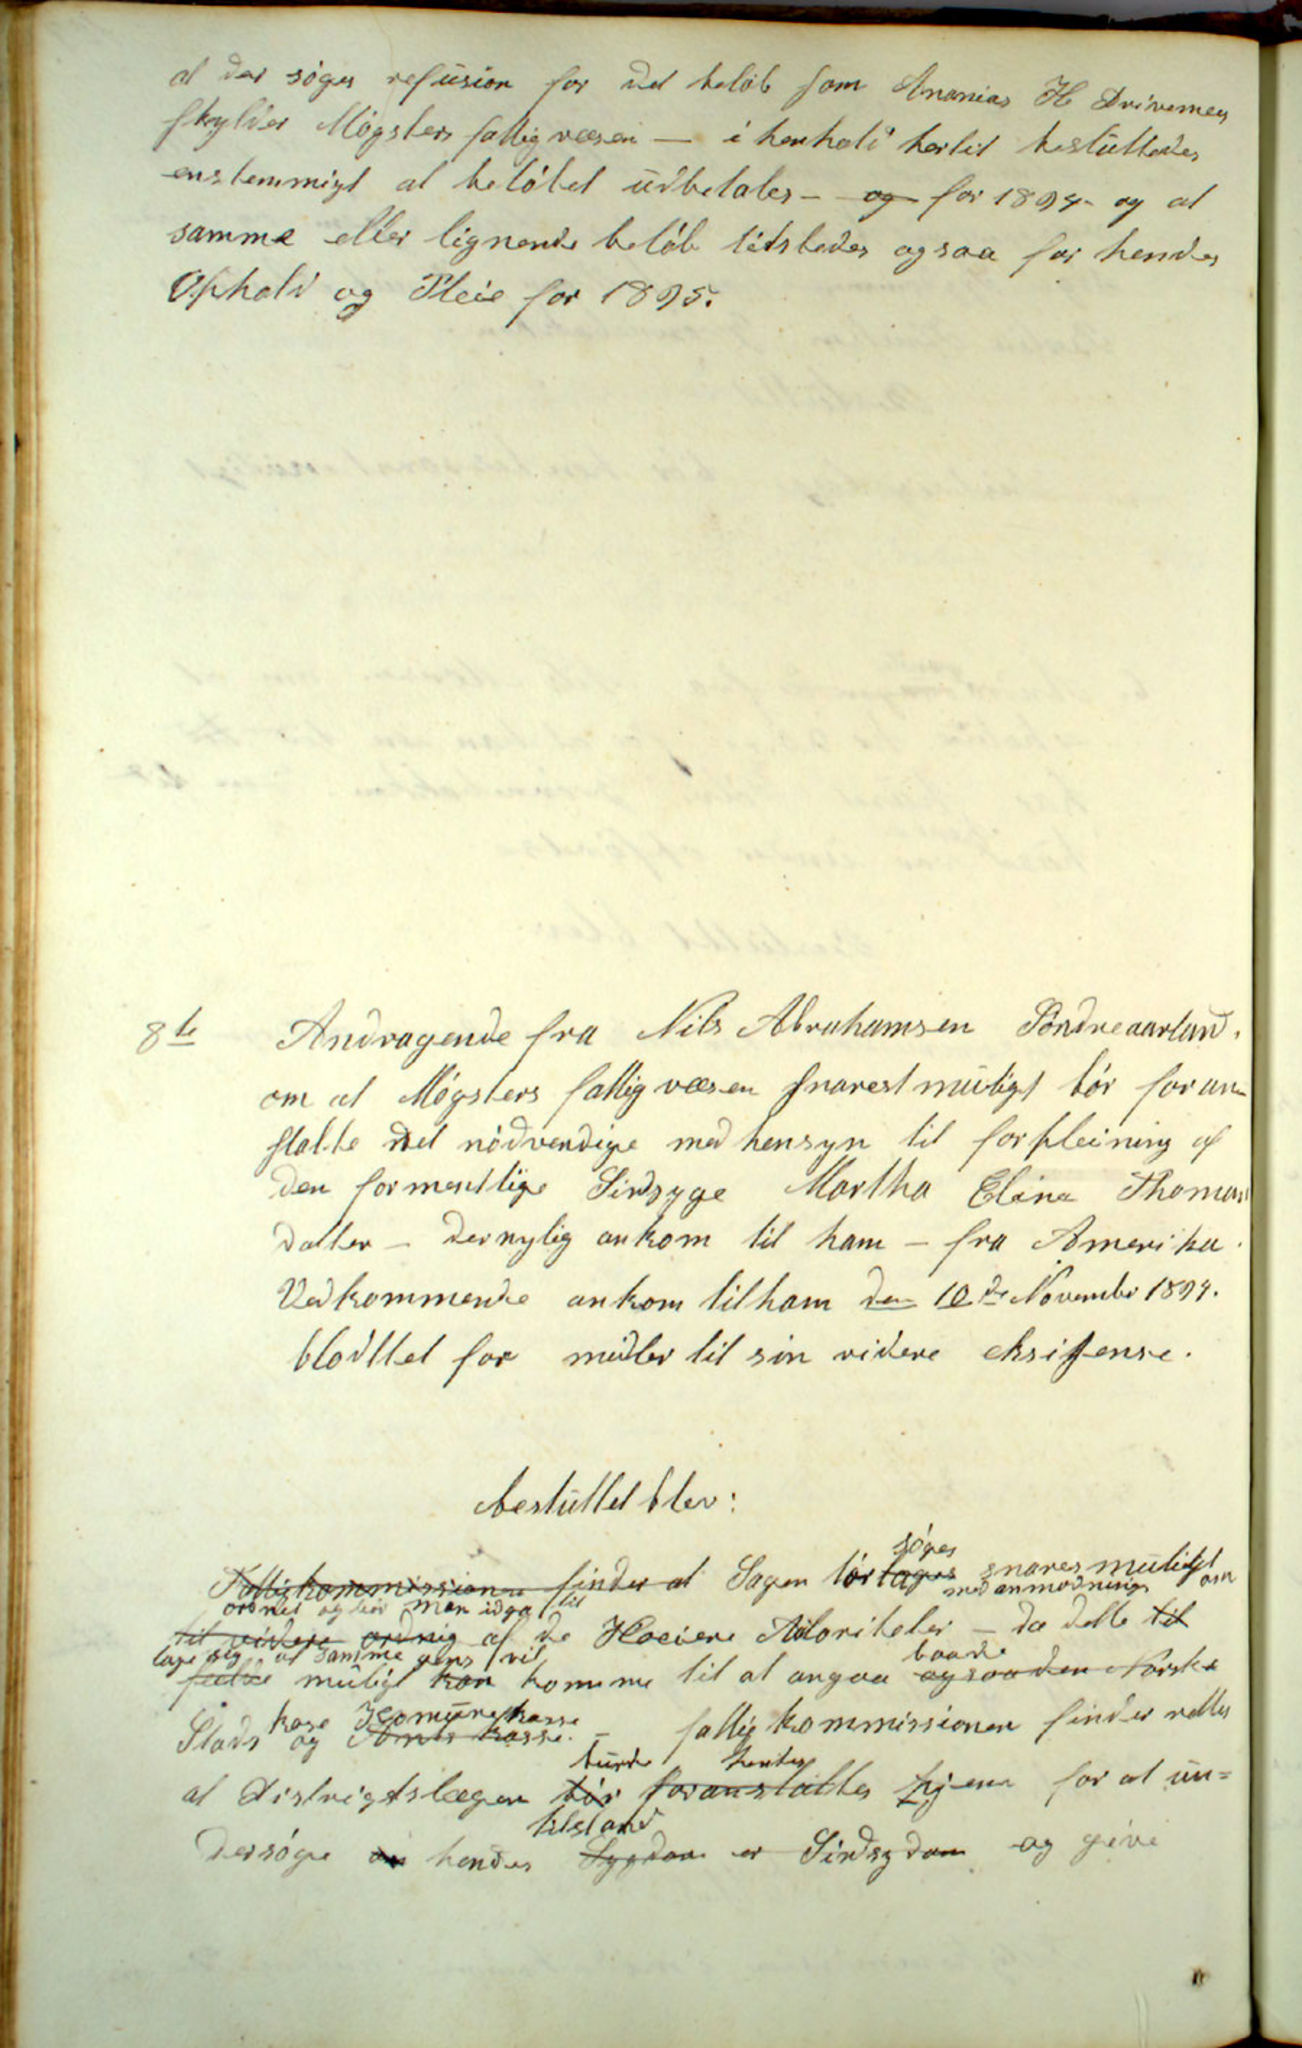 at der søges refusion for det beløb som Ananias H Drivenes
skylder Møgsters fattigvæsen — i henhold hertil besluttedes
enstemmigt at beløbet udbetales — og for 1894 og at
samme eller lignende beløb tilstedes ogsaa for hendes
Ophold og Pleie for 1895.
8de Andragende fra Nils Abrahamsen Søndreaarland.
om at Møgsters fattigvæsen snarest muligt bør foran
stalte det nødvendige med hensyn til forpleining af
den formentlige Sindsyge Martha Elina Thomas
datter — der nylig ankom til ham — fra Amerika.
Vedkommende ankom til ham den 10de November 1894.
blodttet for midler til sin videre eksistense.
besluttet blev:
søges
Fattigkommissionen finder at Sagen bør tages snarest muligt
ordnet og bør man til med anmodning om
til videre ordnig af de Høiere Autoriteter — da dette til
tage sig at samme vil baade
muligt kan komme til at angaa ogsaa den Norske
kase Komunekasse
Stads og Amts kasse. — fattigkommissionen finder rettes
burde hentes
at Distrigtslægen bør foranstaltes hjem for at un=
tilstand
dersøge om hendes Sygdom er Sindsygdom og give